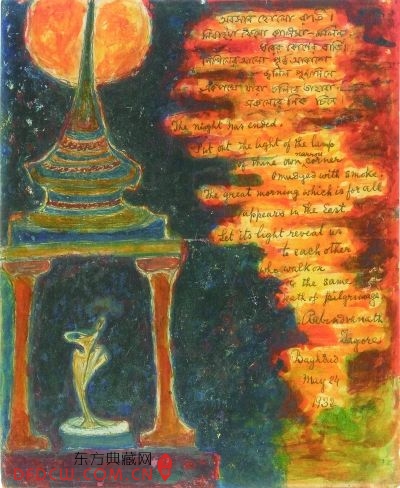 অবসান হোলো রাতি।
নিবাইয়া ফেলো কালিমা-মলিন
ঘরের কোণের বাতি।
নিখিলের আলো পূর্ব আকাশে
জ্বলিল পুণ্যদিনে
একপথে যারা চলিবে তাহারা
সকলেরে নিক্ চিনে।
The night has ended.
Put out the light of the lamp
of thine own narrow corner
smudged with smoke.
The great morning which is for all
appears in the East
Let its light reveal us
to each other
who walk on
the same
path of pilgrimage.
Rabindranath
Tagore
Baghdad
May 24
1932
东方典藏网